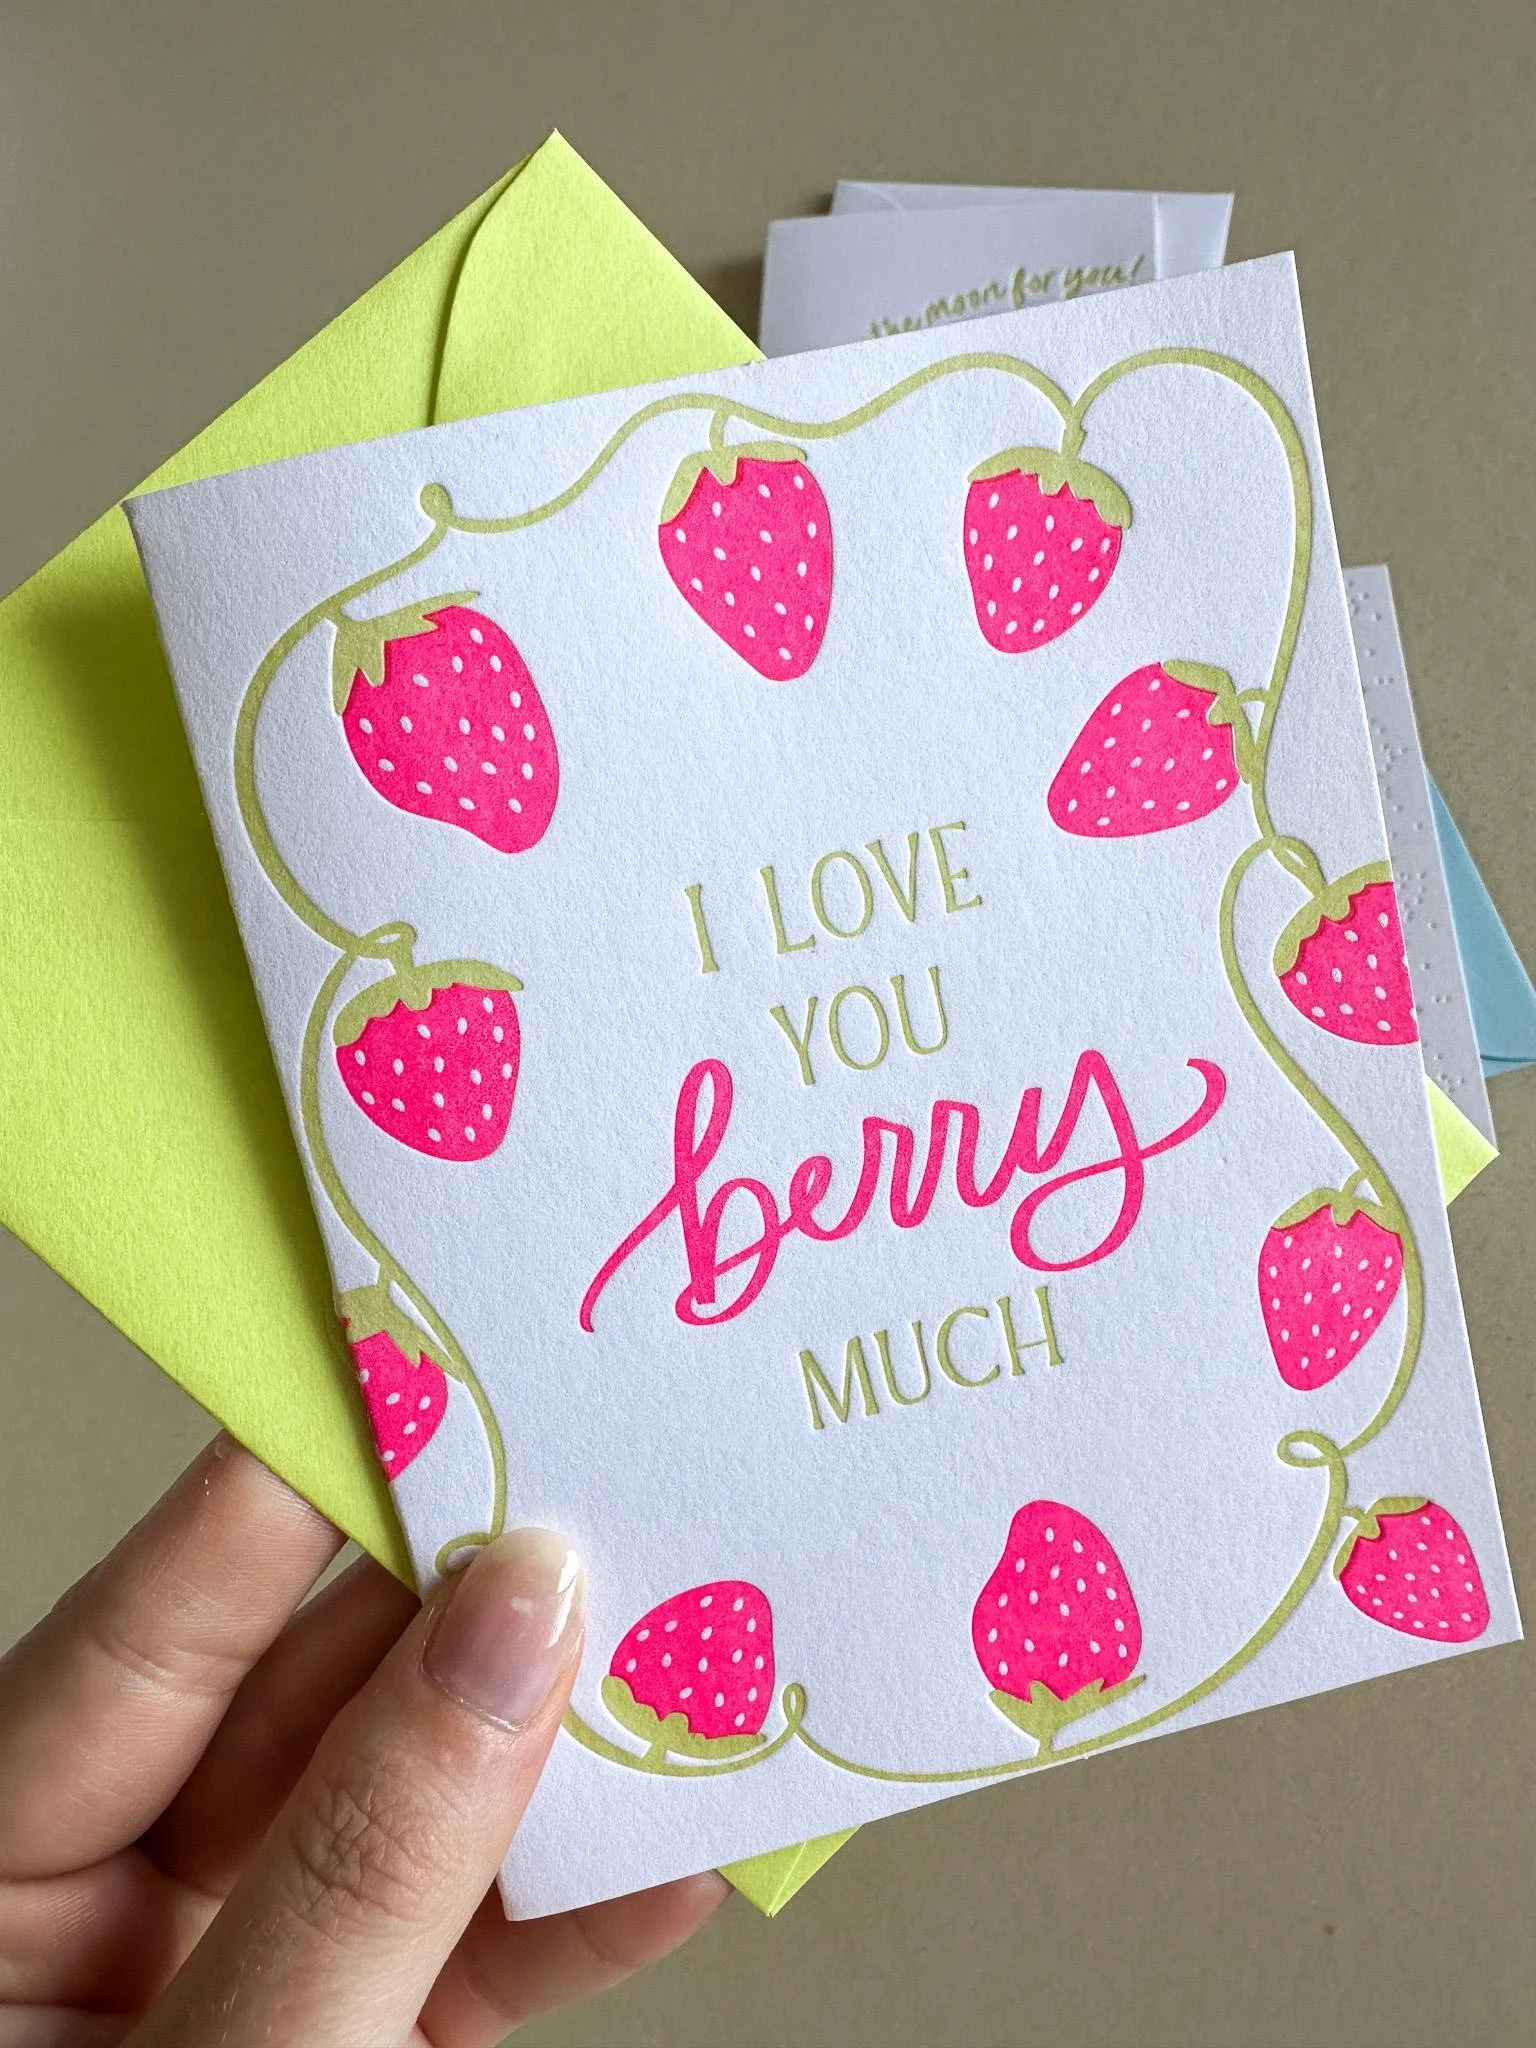 the moon for you!
I LOVE
YOU
berry
MUCH